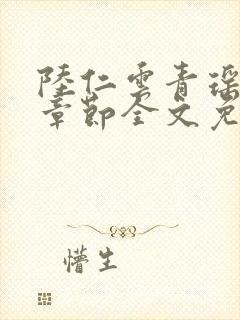 陸仁雲青瑶
章節全文免
懵生